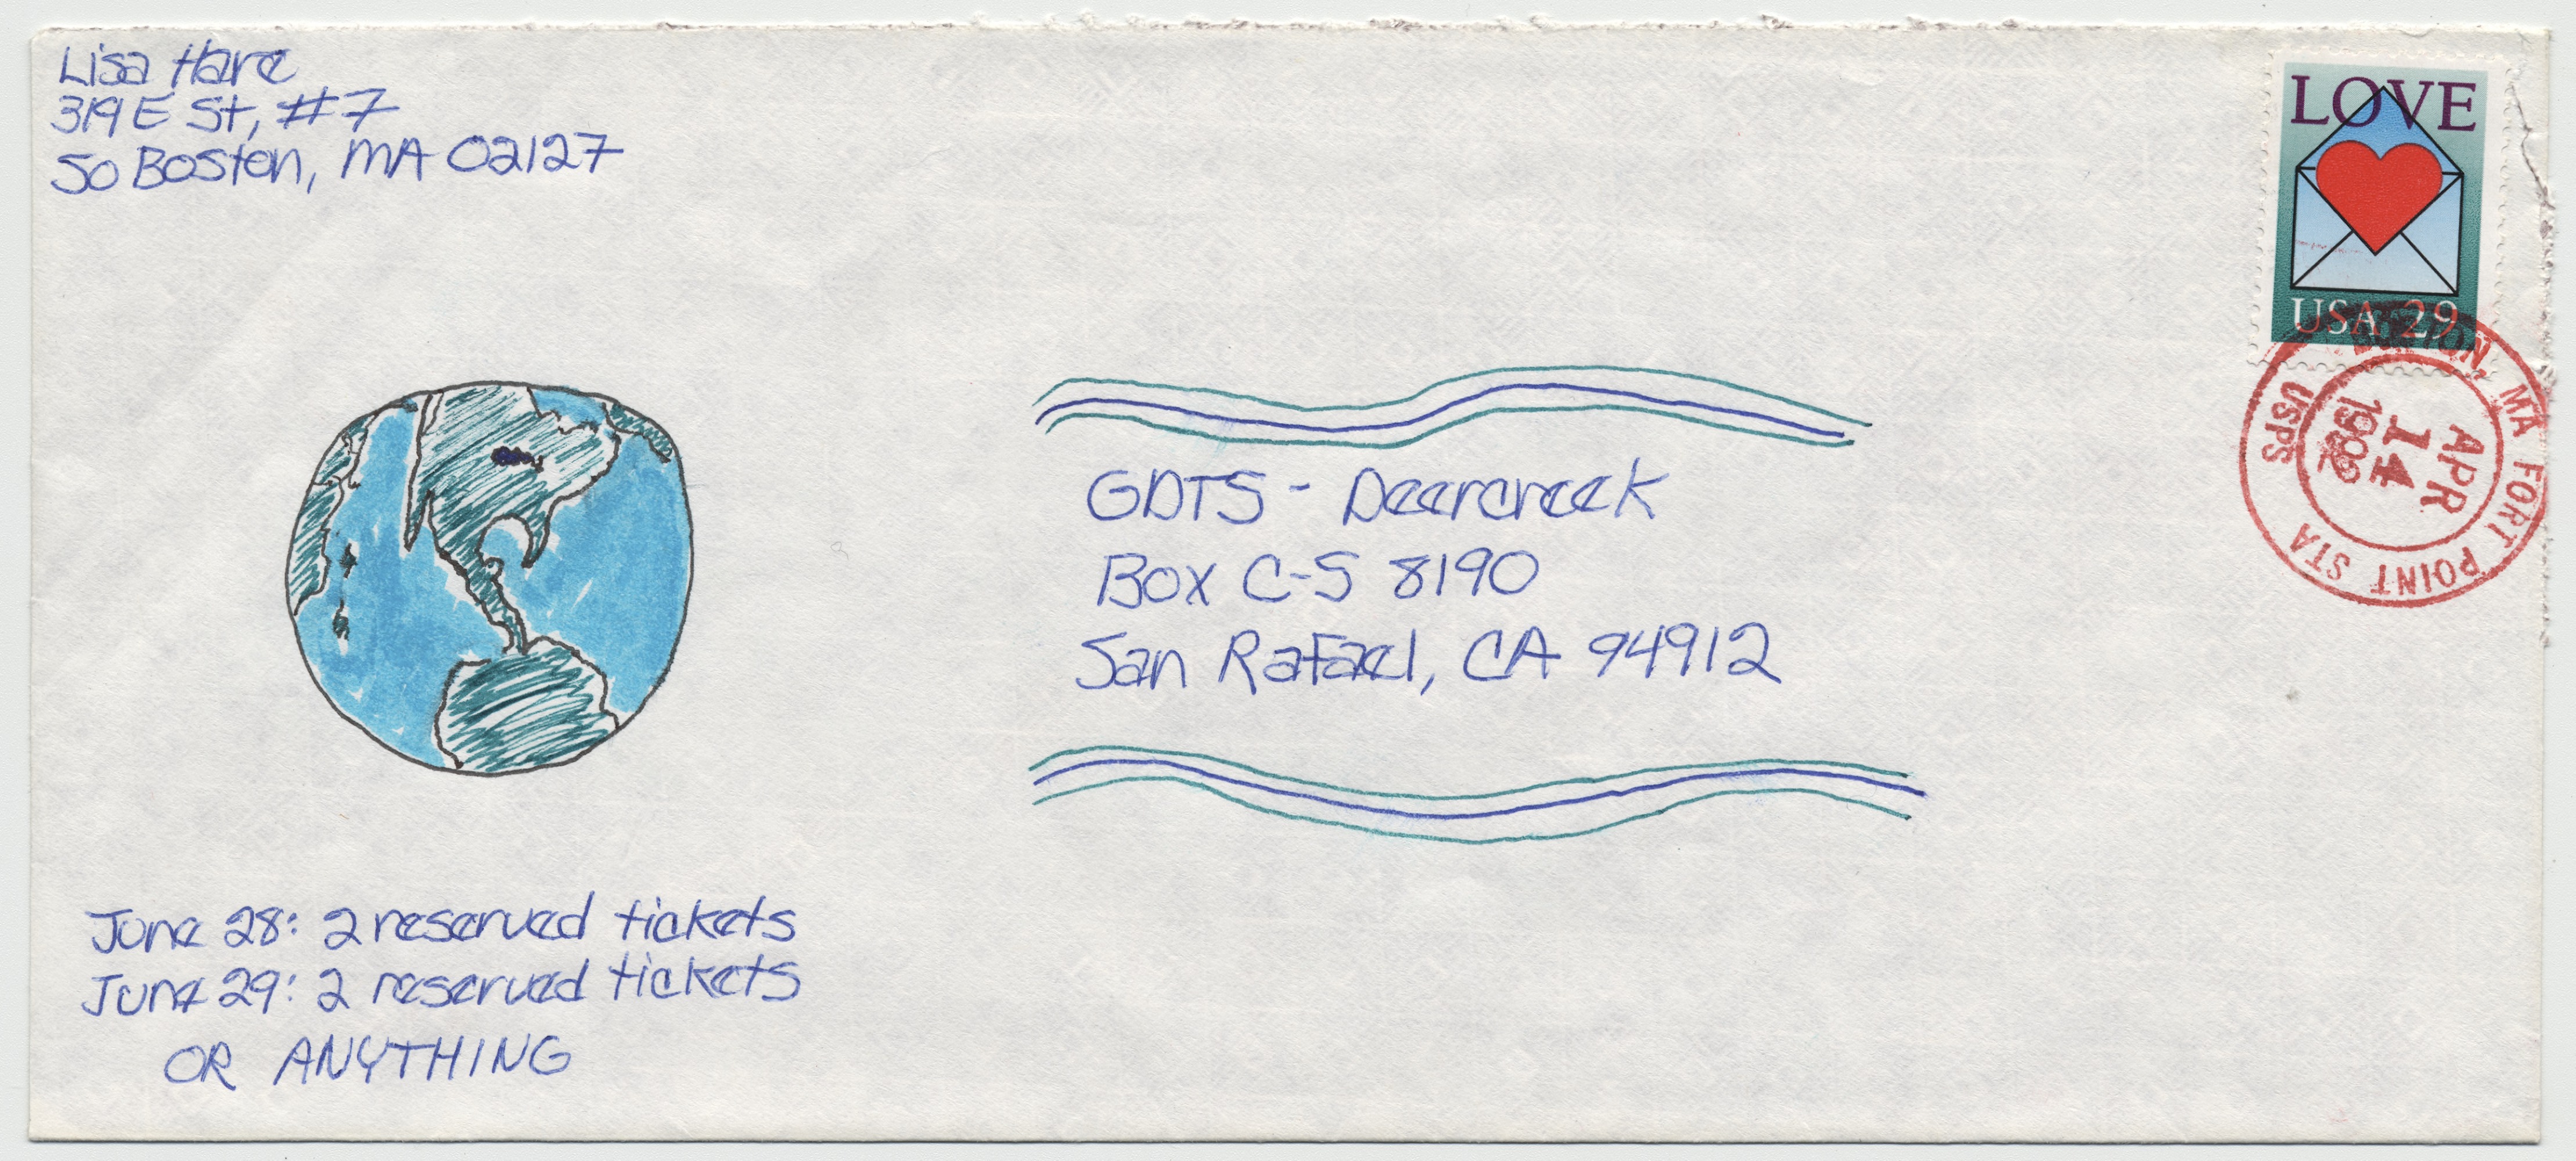 Lisa Hare
319 E St, #7
So Boston, MA 02127
LOVE
USA 29
BOSTON, MA FORT POINT STA
USPS
APR
14
1992
GDTS - Deercreek
Box C-S 8190
San Rafael, CA 94912
June 28: 2 reserved tickets
June 29: 2 reserved tickets
OR ANYTHING